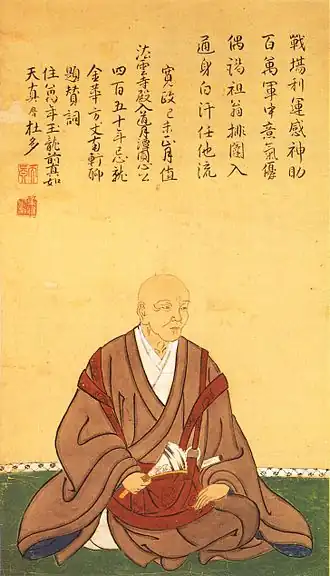 戰場利運感神助
百萬軍中意氣優
偶謁祖翁排闥入
通身白汗任他流
寛政己未正月值
法雲寺殿入道月潭圓心公
四百五十年忌龍
金華方丈 軒聊
題賛詞
住万年玉龍前真如
天真 杜多